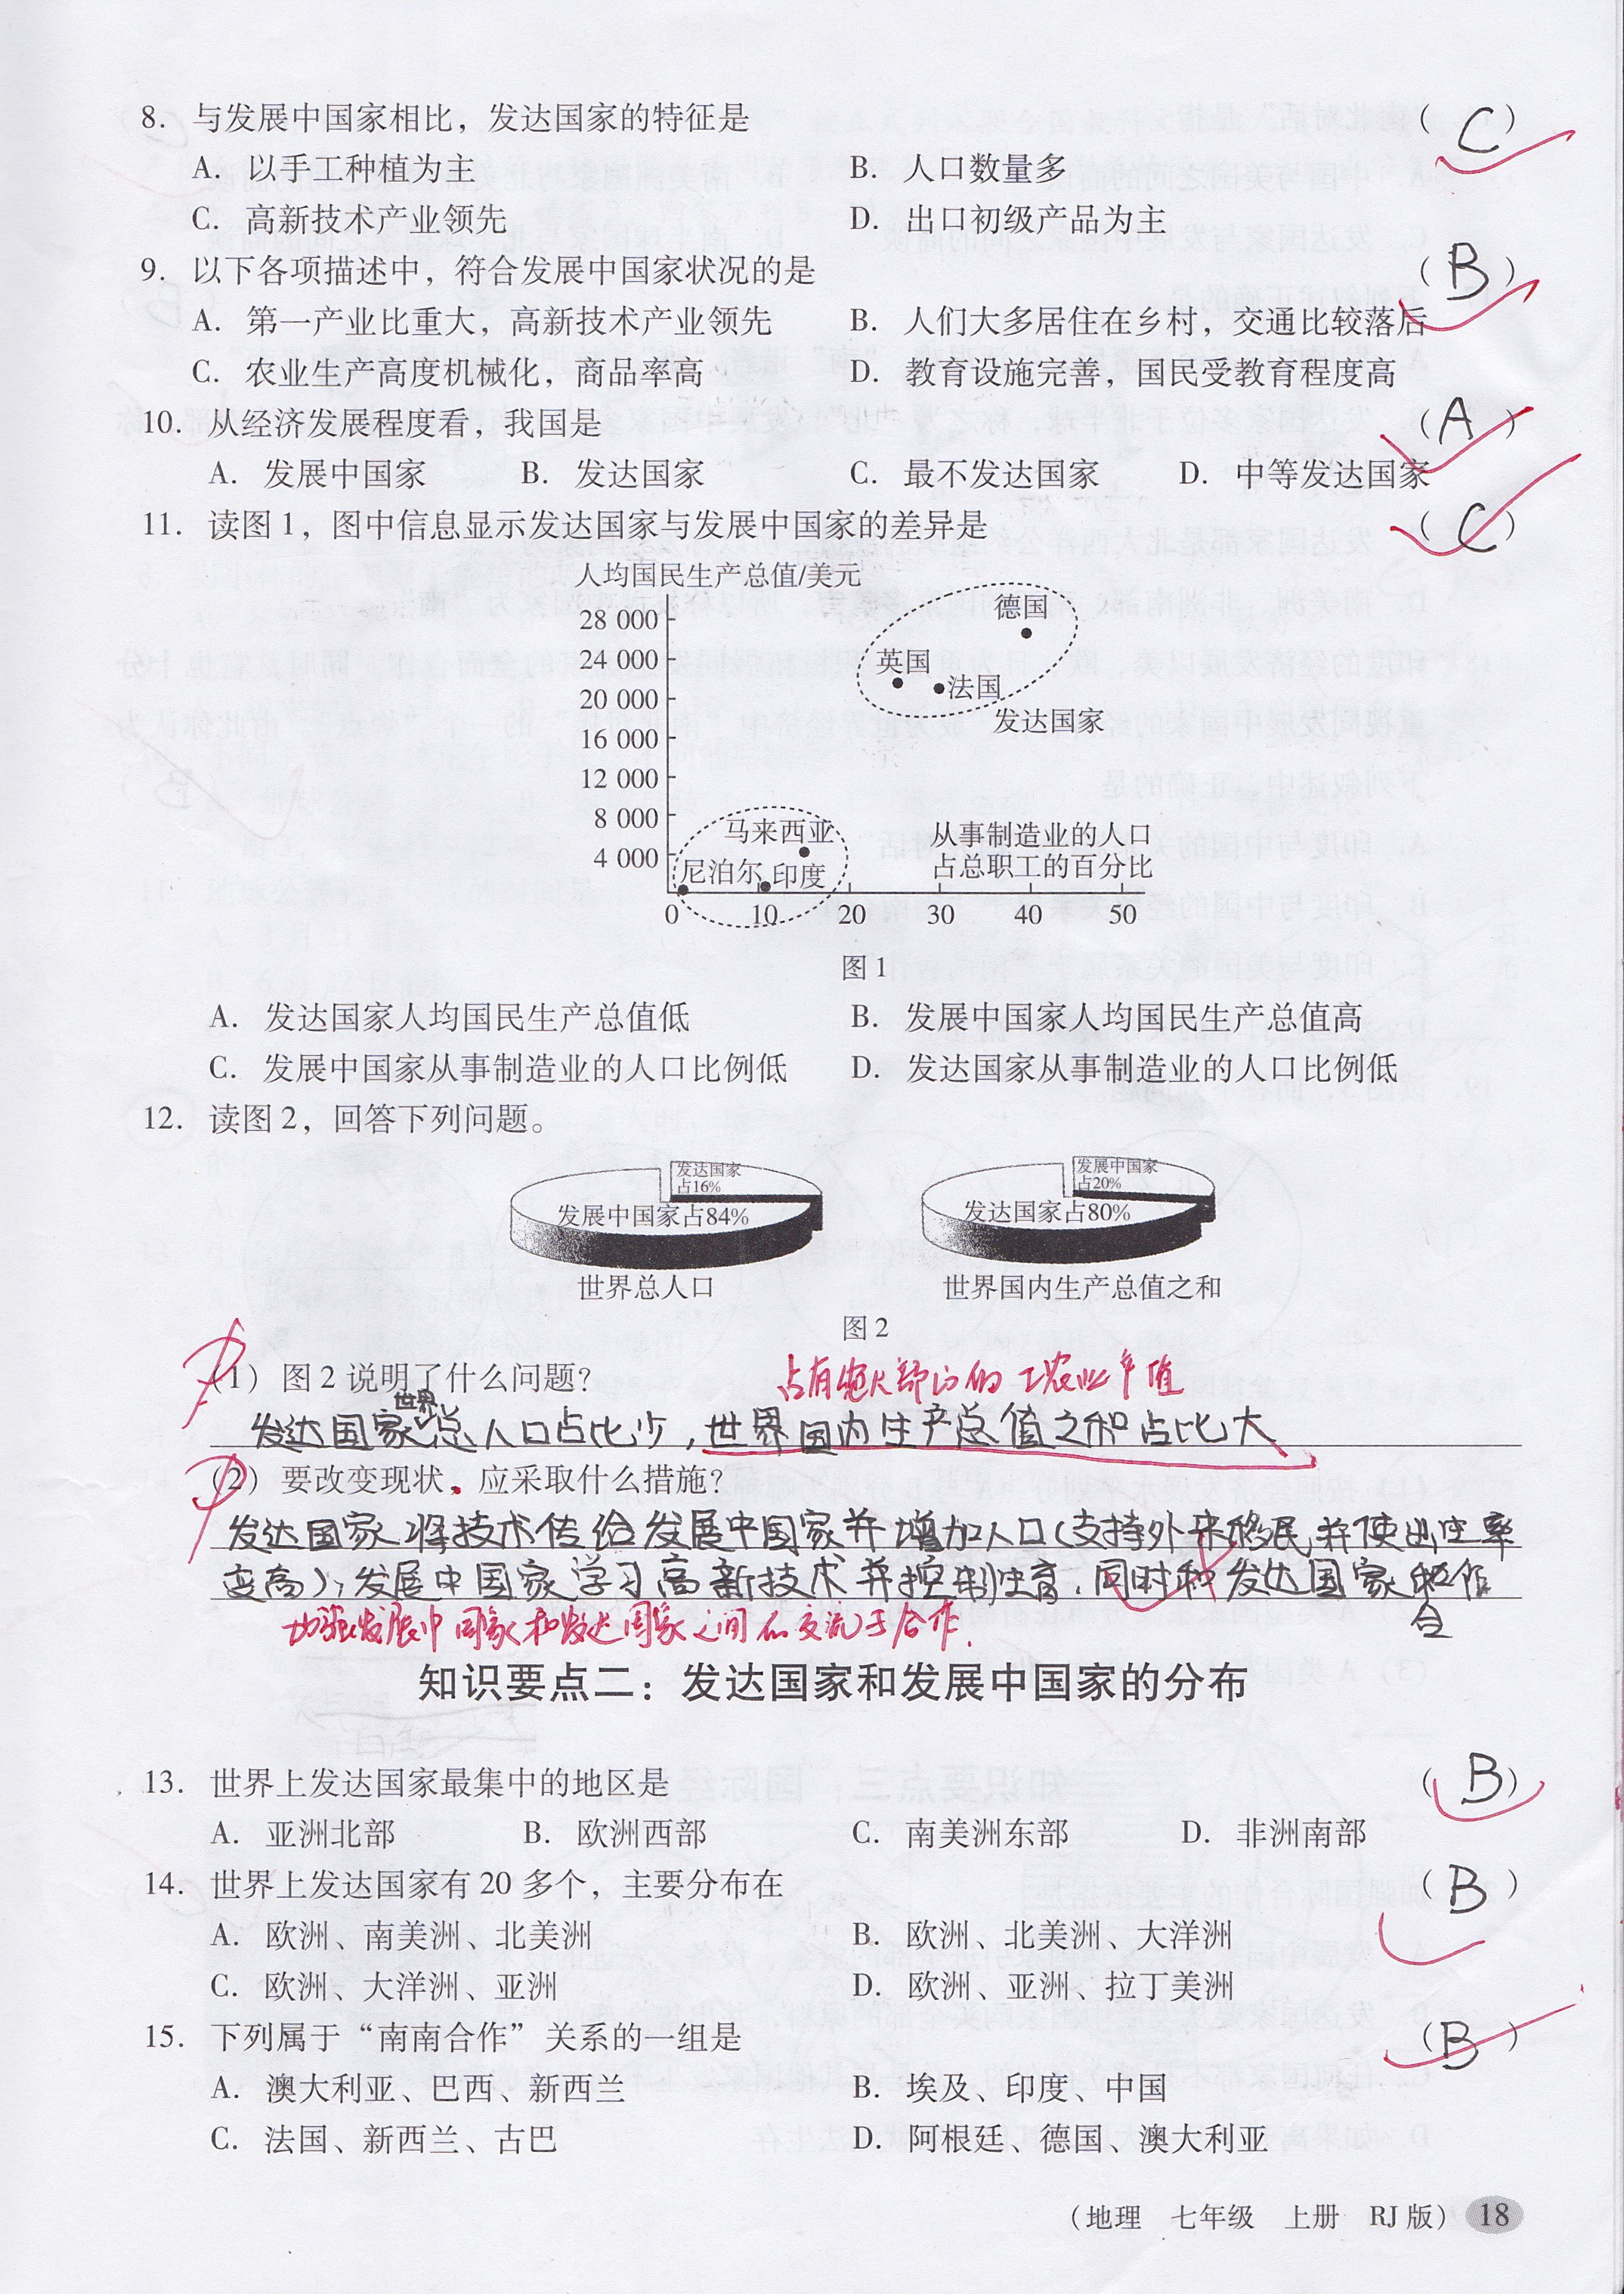 8. 与发展中国家相比，发达国家的特征是 （ C ）
A. 以手工种植为主 B. 人口数量多
C. 高新技术产业领先 D. 出口初级产品为主
9. 以下各项描述中，符合发展中国家状况的是 （ B ）
A. 第一产业比重大，高新技术产业领先 B. 人们大多居住在乡村，交通比较落后
C. 农业生产高度机械化，商品率高 D. 教育设施完善，国民受教育程度高
10. 从经济发展程度看，我国是 （ A ）
A. 发展中国家 B. 发达国家 C. 最不发达国家 D. 中等发达国家
11. 读图1，图中信息显示发达国家与发展中国家的差异是 （ C ）
人均国民生产总值/美元
28 000
德国
24 000
英国
20 000
法国
发达国家
16 000
12 000
8 000
马来西亚
从事制造业的人口
4 000
占总职工的百分比
尼泊尔 印度
0 10 20 30 40 50
图1
A. 发达国家人均国民生产总值低 B. 发展中国家人均国民生产总值高
C. 发展中国家从事制造业的人口比例低 D. 发达国家从事制造业的人口比例低
12. 读图2，回答下列问题。
发达国家
占16%
发展中国家占84%
世界总人口
发展中国家
占20%
发达国家占80%
世界国内生产总值之和
图2
（1）图2说明了什么问题？
占有绝大部分的工农业产值
发达国家世界总人口占比少，世界国内生产总值之和占比大
（2）要改变现状，应采取什么措施？
发达国家将技术传给发展中国家并增加人口（支持外来移民并使出生率
变高），发展中国家学习高新技术并控制生育，同时和发达国家
合
加强发展中国家和发达国家之间的交流于合作.
知识要点二：发达国家和发展中国家的分布
13. 世界上发达国家最集中的地区是 （ B ）
A. 亚洲北部 B. 欧洲西部 C. 南美洲东部 D. 非洲南部
14. 世界上发达国家有20多个，主要分布在 （ B ）
A. 欧洲、南美洲、北美洲 B. 欧洲、北美洲、大洋洲
C. 欧洲、大洋洲、亚洲 D. 欧洲、亚洲、拉丁美洲
15. 下列属于“南南合作”关系的一组是 （ B ）
A. 澳大利亚、巴西、新西兰 B. 埃及、印度、中国
C. 法国、新西兰、古巴 D. 阿根廷、德国、澳大利亚
（地理 七年级 上册 RJ版） 18